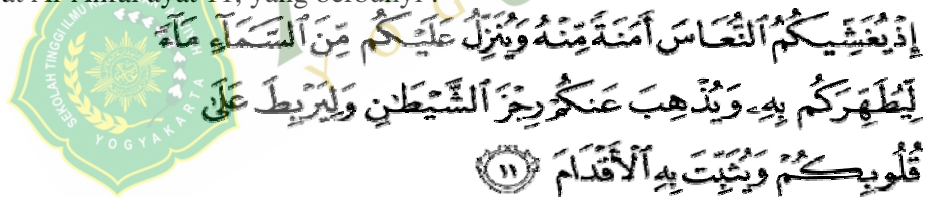 إِذْ يُغَشِّيكُمُ ٱلنُّعَاسَ أَمَنَةً مِّنْهُ وَيُنَزِّلُ عَلَيْكُم مِّنَ ٱلسَّمَآءِ مَآءً
لِّيُطَهِّرَكُم بِهِۦ وَيُذْهِبَ عَنكُمْ رِجْزَ ٱلشَّيْطَٰنِ وَلِيَرْبِطَ عَلَىٰ
قُلُوبِكُمْ وَيُثَبِّتَ بِهِ ٱلْأَقْدَامَ ﴿١١﴾
SEKOLAH TINGGI ILMU
YOGYAKARTA